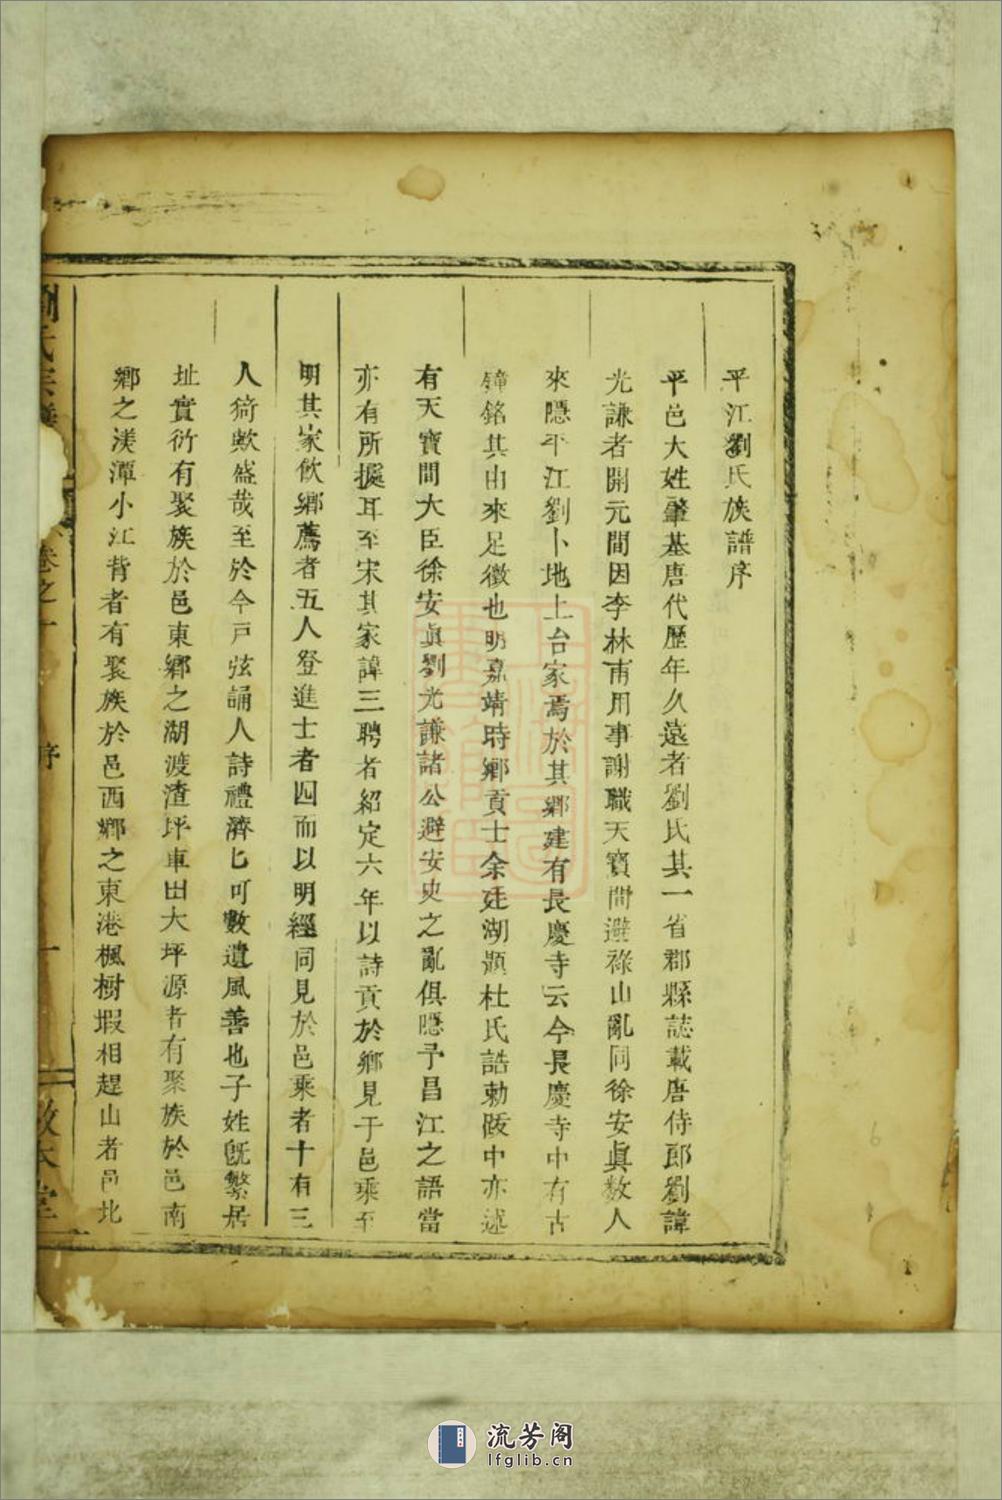 平江劉氏族譜序
平邑大姓肇基唐代歷年久遠者劉氏其一省郡縣誌載唐侍郎劉諱
光謙者開元間因李林甫用事謝職天寶間避祿山亂同徐安眞数人
來隱平江劉卜地上台家焉於其鄉建有長慶寺云今長慶寺中有古
鐘銘其由來足徵也明嘉靖時鄉貢士余廷湖題杜氏誥勅跋中亦述
有天寶間大臣徐安眞劉光謙諸公避安史之亂俱隱予昌江之語當
亦有所據耳至宋其家諱三聘者紹定六年以詩貢於鄉見于邑乘至
明其家飲鄉薦者五人登進士者四而以明經同見於邑乘者十有三
人猗歟盛哉至於今戸弦誦人詩禮濟匕可數遺風善也子姓旣繁居
址實衍有聚族於邑東鄉之湖渡渣坪車田大坪源者有聚族於邑南
鄉之渼潭小江背者有聚族於邑西鄉之東港楓樹塅相趕山者邑北
劉氏宗譜
卷之一
序
一
敦本堂
流芳阁
lfglib.cn